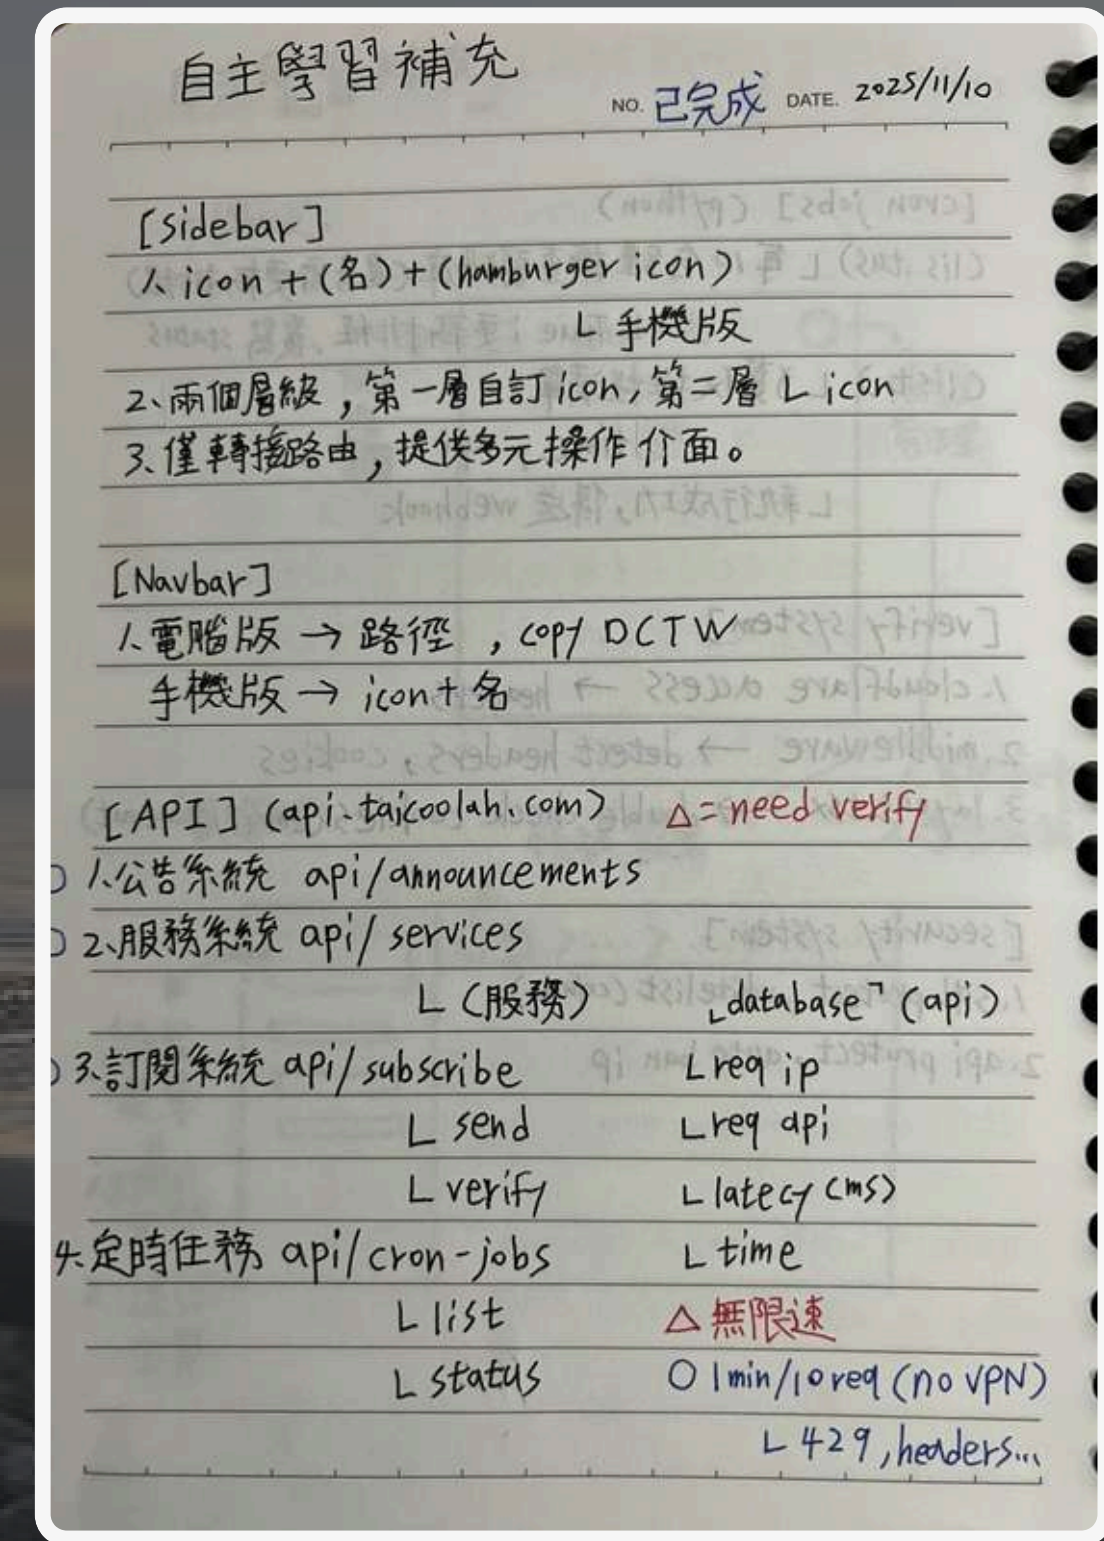 自主學習補充
NO. 已完成 DATE. 2025/11/10
[sidebar]
1. icon + (名) + (hamburger icon)
L 手機版
2、兩個層級，第一層自訂icon，第二層 L icon
3、僅轉接路由，提供多元操作介面。
[Navbar]
1.電腦版 → 路徑 , copy DCTW
手機版 → icon + 名
[API] (api.taicoolah.com) △=need verify
1.公告系統 api/announcements
2、服務系統 api/services
L (服務) 「database」(api)
3.訂閱系統 api/subscribe L req ip
L send L req api
L verify L latecy (ms)
4.定時任務 api/cron-jobs L time
L list △ 無限速
L status O 1min/10req (no VPN)
L 429, headers...